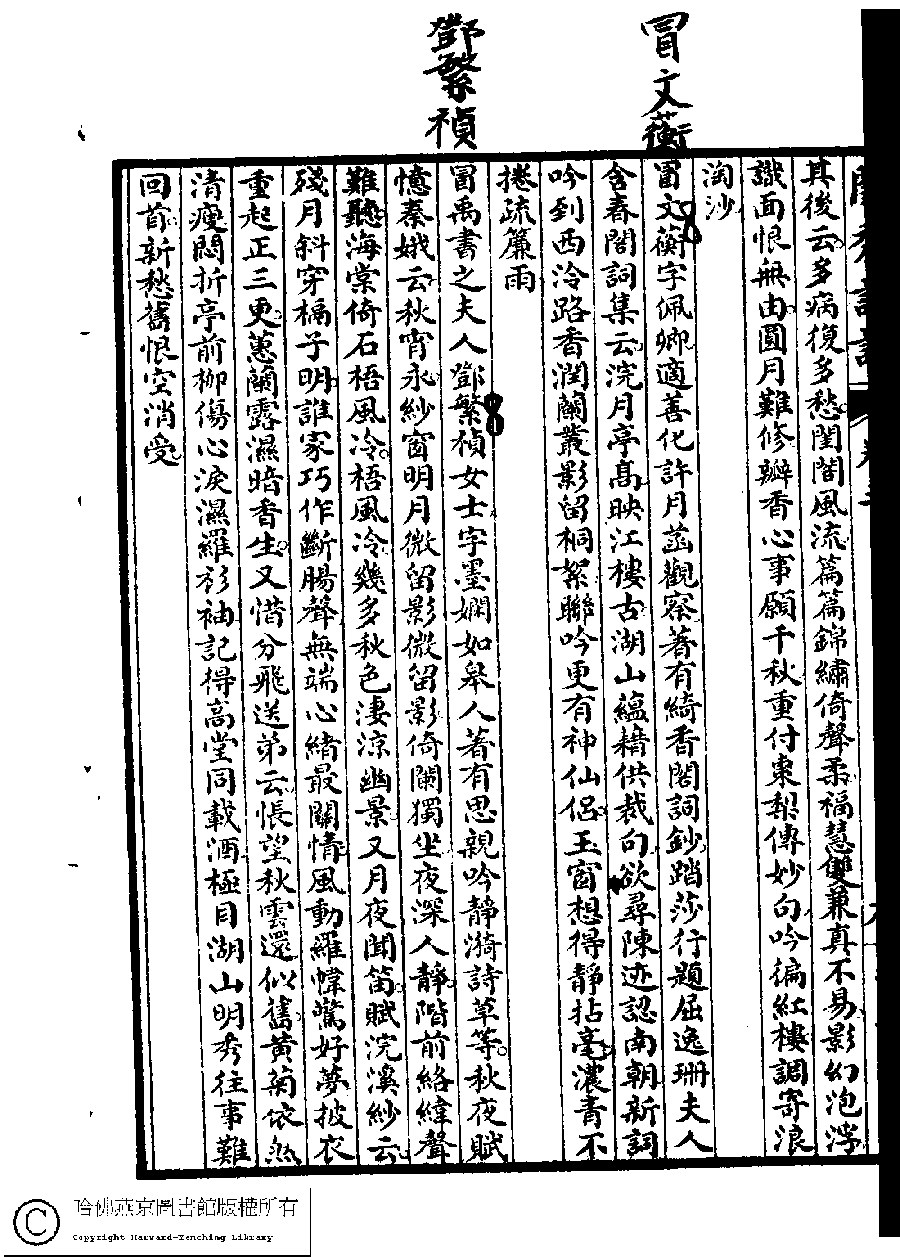 冒文蘅
鄧繁禎
其後云多病復多愁閨閤風流篇篇錦繡倚聲柔福慧雙兼真不易影幻泡浮
識面恨無由圓月難修瓣香心事願千秋重付棗梨傳妙句吟徧紅樓調寄浪
淘沙
冒文蘅字佩卿適善化許月菡觀察著有綺香閣詞鈔踏莎行題屈逸珊夫人
含春閣詞集云浣月亭高映江樓古湖山蘊藉供裁句欲尋陳迹認南朝新詞
吟到西泠路香潤蘭叢影留桐絮聯吟更有神仙侶玉窗想得靜拈毫濃青不
捲疏簾雨
冒禹書之夫人鄧繁禎女士字墨嫻如皋人著有思親吟靜漪詩草等秋夜賦
憶秦娥云秋宵永紗窗明月微留影微留影倚闌獨坐夜深人靜階前絡緯聲
難聽海棠倚石梧風冷梧風冷幾多秋色淒涼幽景又月夜聞笛賦浣溪紗云
殘月斜穿槅子明誰家巧作斷腸聲無端心緒最關情風動羅幃驚好夢披衣
重起正三更蕙蘭露濕暗香生又惜分飛送弟云悵望秋雲還似舊黃菊依然
清瘦悶折亭前柳傷心淚濕羅衫袖記得高堂同載酒極目湖山明秀往事難
回首新愁舊恨空消受
哈佛燕京圖書館版權所有
Copyright Harvard-Yenching Library